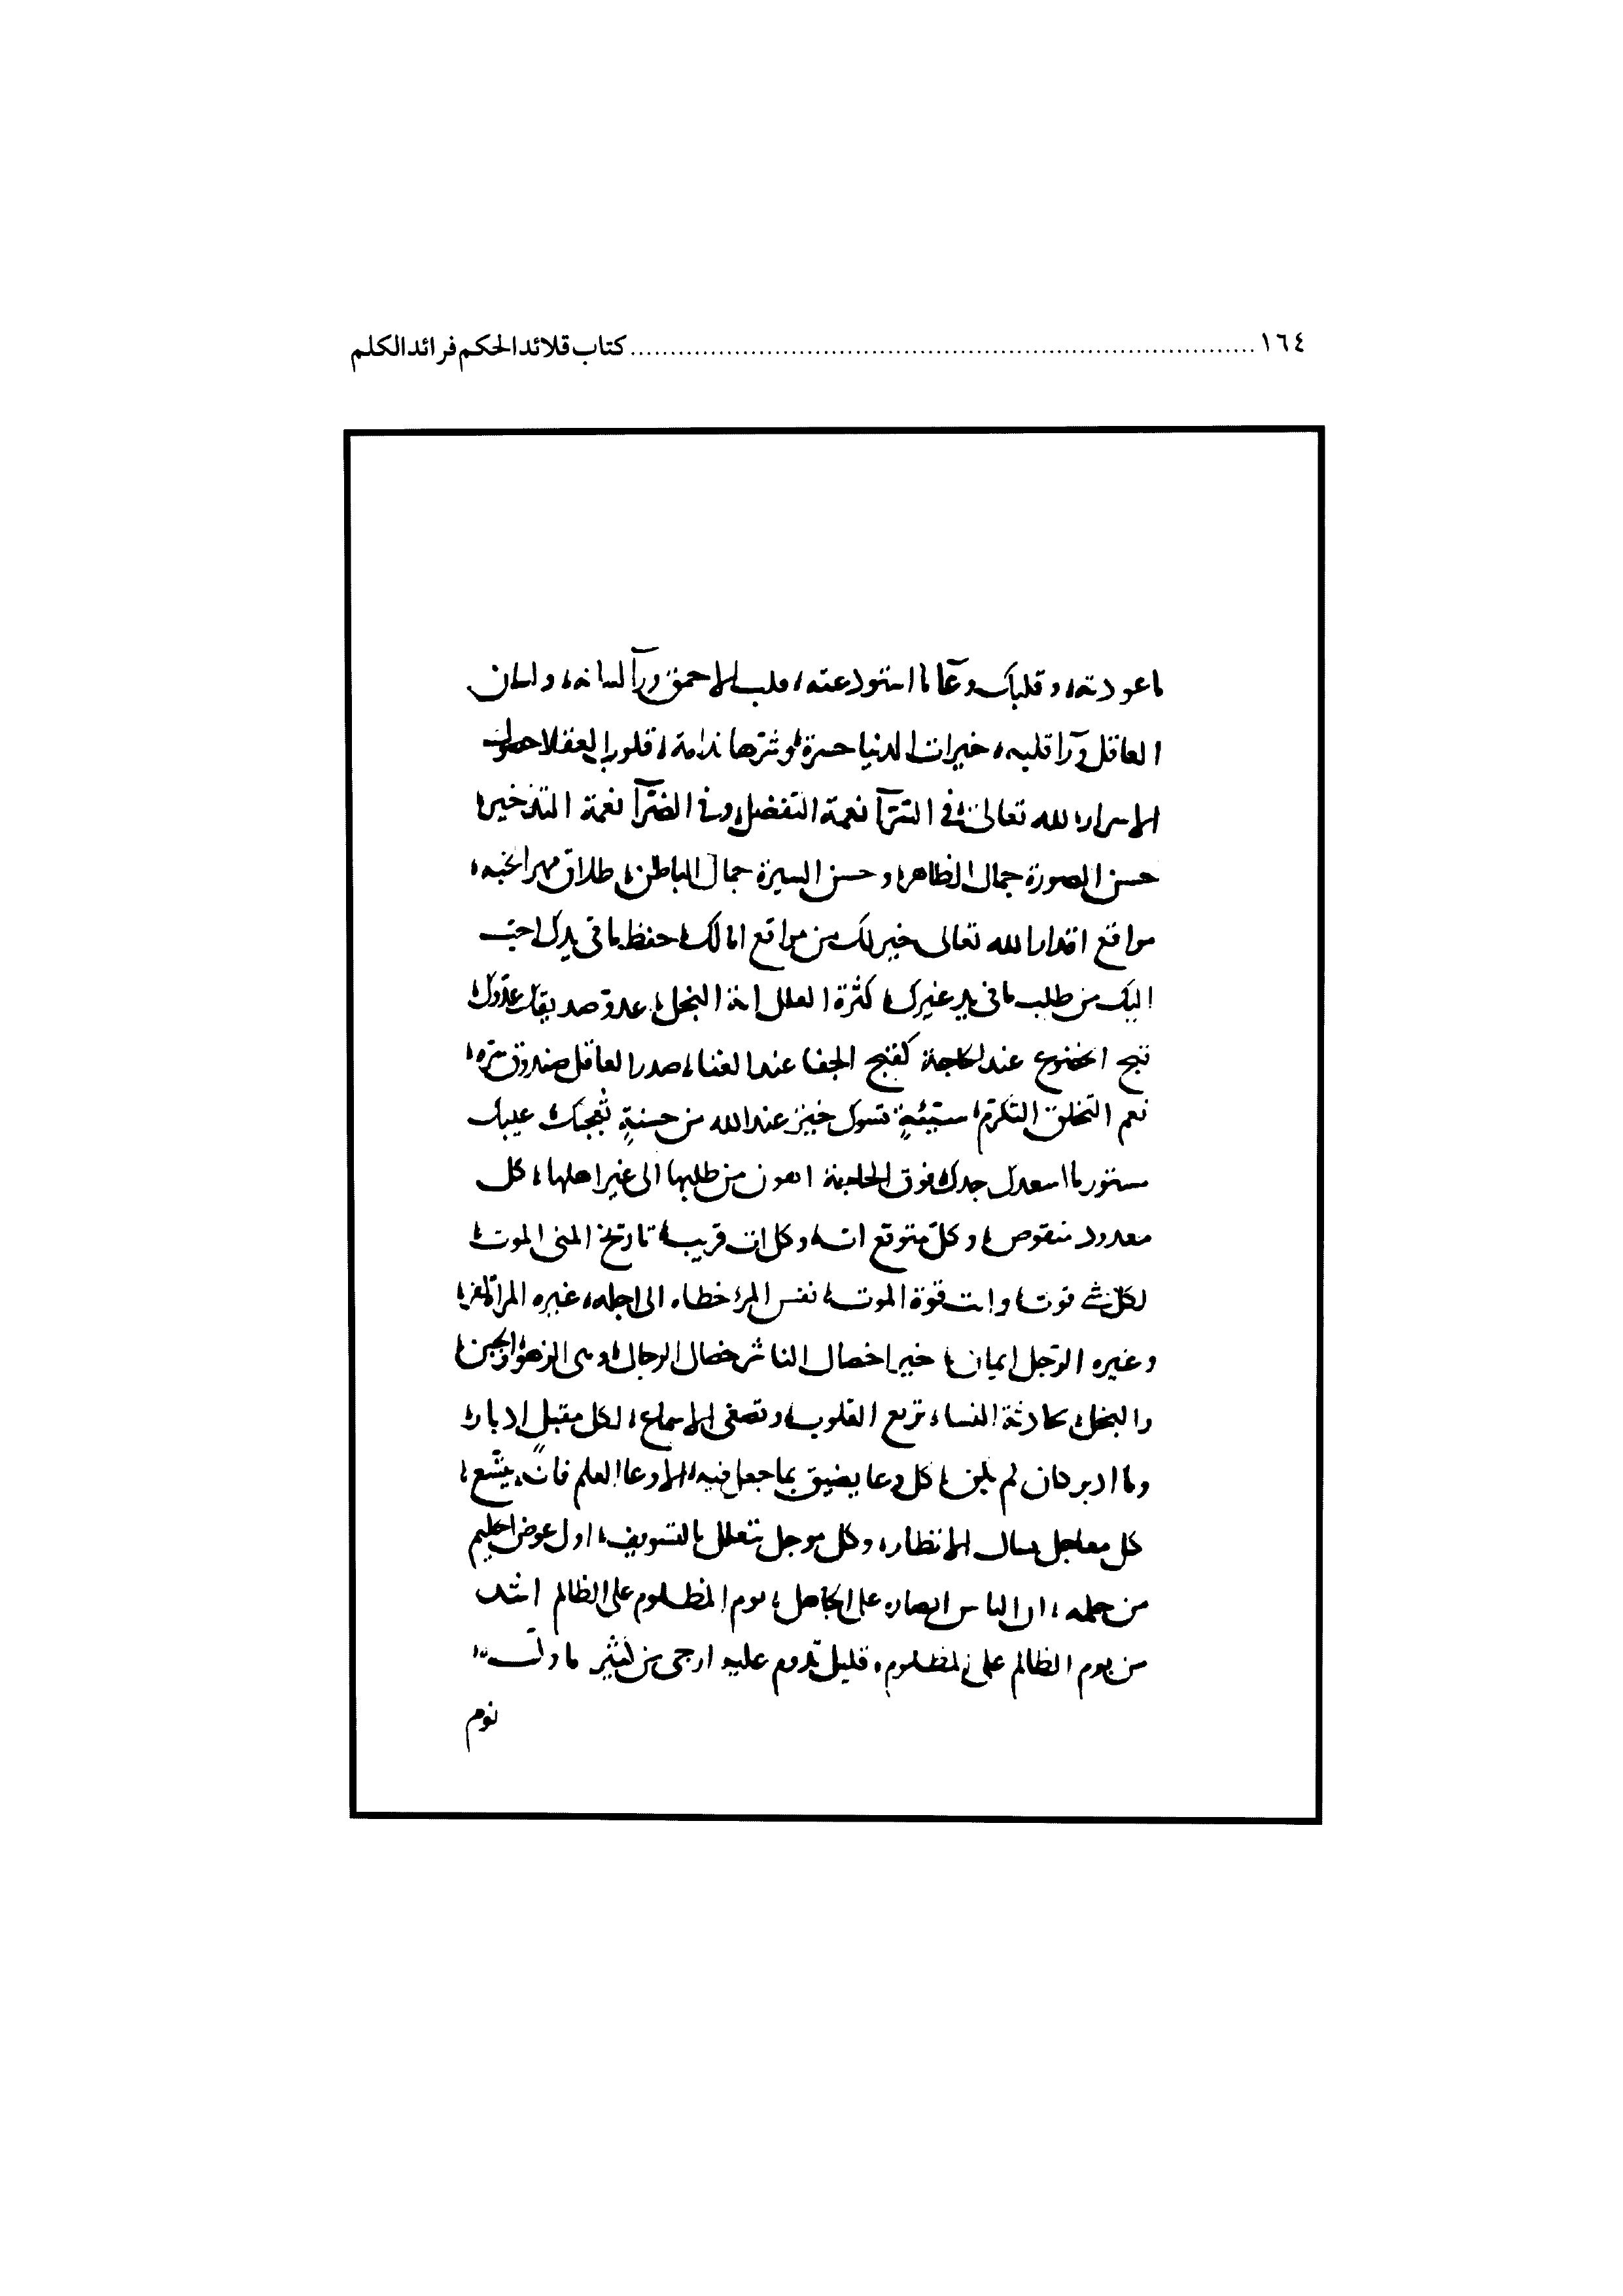 ١٦٤ ........ كتاب قلائد الحكم فرائد الكلم
ما عودته، وقلبك وعآ ما استودعته، قلب الاحمق ورآ لسانه، ولسان
العاقل ورآ قلبه، خيرات الدنيا حسرة وشرها ندامة، قلوب العقلا حصون
الاسرار، لله تعالى في السرآ نعمة التفضل وفي الضرآ نعمة
حسن الصورة جمال الظاهر، وحسن السيرة جمال الباطن، طلاق مهر الجنه،
مواقع اقدار الله تعالى خير لك من مواقع امالك، حفظ ما في يدك احب
اليك من طلب ما في يد غيرك، كثرة العلل اية البخل، عدو صديقك عدوك،
قبح الخضوع عند الحاجة كقبح الجفا عند الغناء، صدر العاقل صندوق سره،
نعم التخلق التكرم، سيئة تسوك خير عند الله من حسنة تعجبك، عيبك
مستور ما اسعدك جدك، فوق الحاجة اهون من طلبها الى غير اهلها، كل
معدود منقوص، وكل متوقع ات، وكل ات قريب، المنى الموت،
لكل شي قوت، وانت قوة الموت، نفس المرء خطاه الى اجله، غيره المراة كفر،
وغيره الرجل ايمان، خير اخصال النسا شر خصال الرجال، وهى الزهو والجبن،
والبخل، محادثة النساء تزيع القلوب، وتصغى الاسماع، لكل مقبل ادبار،
وما ادبر كان لم يكن، كل وعا يضيق بما جعل فيه، الا وعا العلم فانه يتسع،
كل معاجل يسال الانظار، وكل موجل يتعلل بالتسويف، اول عوض الحليم
من حلمه، ان الناس انصاره على الجاهل، يوم المظلوم على الظالم اشد
من يوم الظالم على المظلوم، قليل تدوم عليه ارجى من كثير
نوم